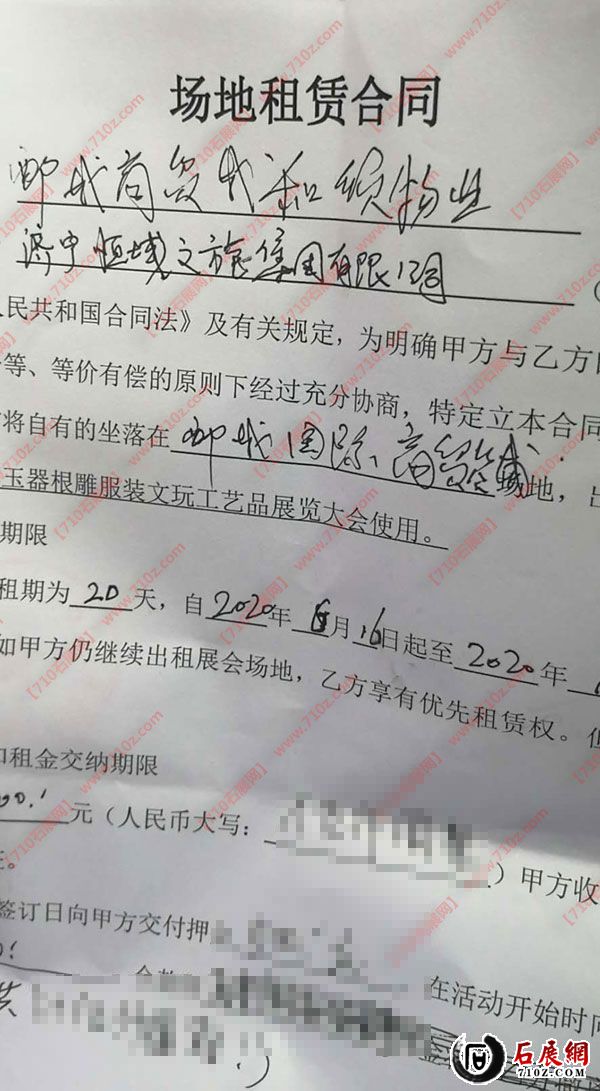 场地租赁合同
郓城商贸城和顺物业
济宁恒域文旅集团有限公司
人民共和国合同法》及有关规定,为明确甲方与乙方
等、等价有偿的原则下经过充分协商,特定立本合同
将自有的坐落在郓城国际商贸城场地,出
玉器根雕服装文玩工艺品展览大会使用。
期限
租期为20天,自2020年6月16日起至2020年
如甲方仍继续出租展会场地,乙方享有优先租赁权。但
和租金交纳期限
00.!元(人民币大写:)甲方收
签订日向甲方交付押
在活动开始时间
【710石展网】www.710z.com
石展網
710z.com